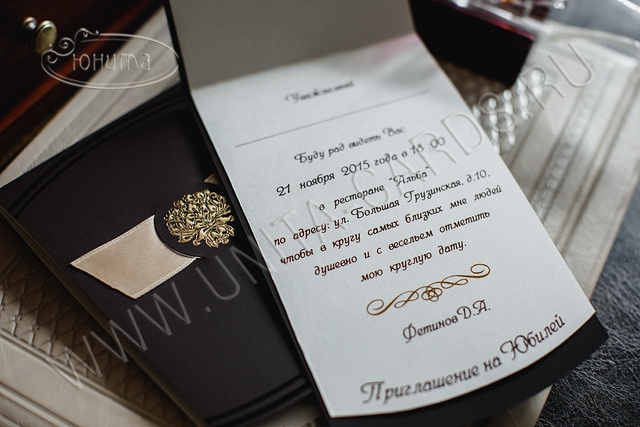 Юнита
Уважаемый
Буду рад видеть Вас
21 ноября 2015 года в 18 00
в ресторане "Альба"
по адресу: ул. Большая Грузинская, д.10.
чтобы в кругу самых близких мне людей
душевно и с весельем отметить
мою круглую дату.
Фетинов Д.А.
Приглашение на Юбилей
WWW.UNITA-CARDS.RU